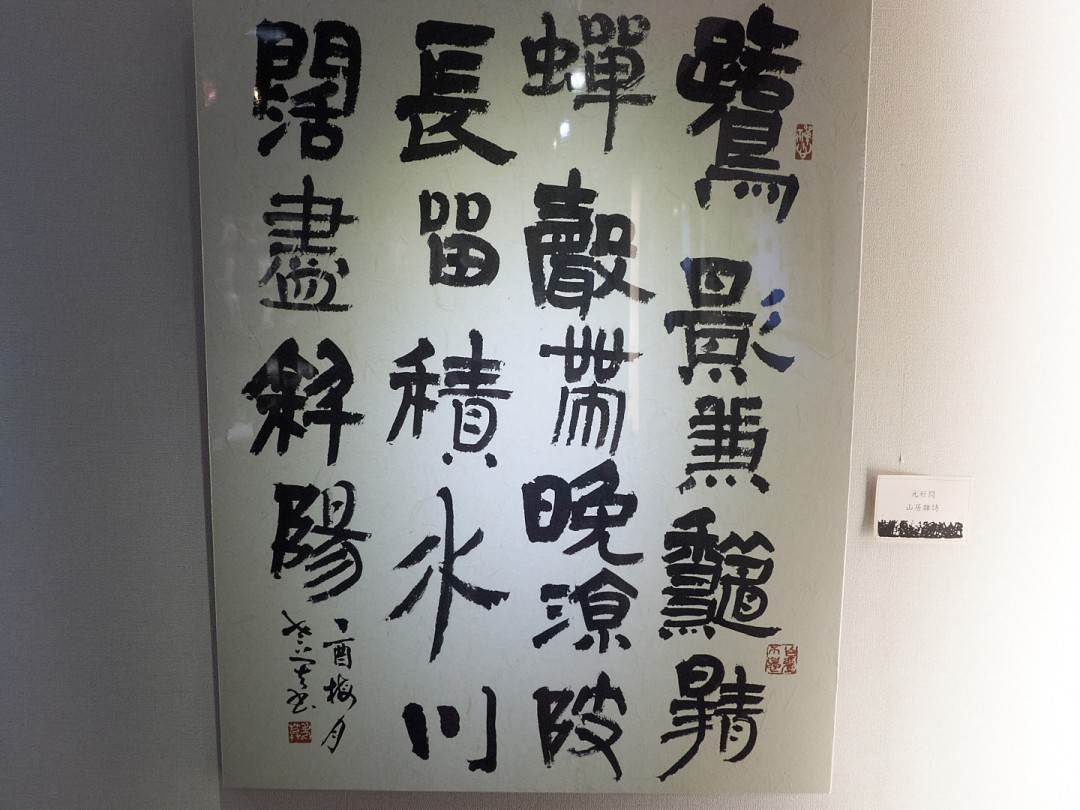 鷺影兼龝靜
蟬聲帶晚涼陂
長留積水川
闊盡斜陽
丁酉梅月
元好問
山居雜詩